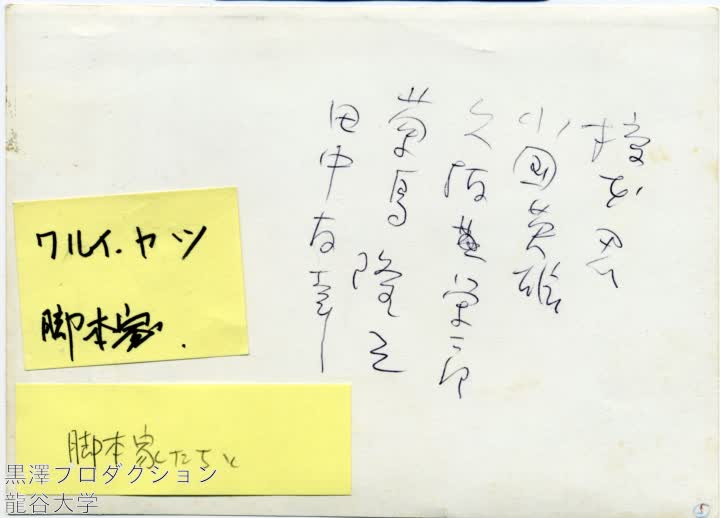 橋本忍
小国英雄
久板栄二郎
菊島隆三
田中友幸
ワルイ.ヤツ
脚本家.
脚本家たちと
黒澤プロダクション
龍谷大学
5